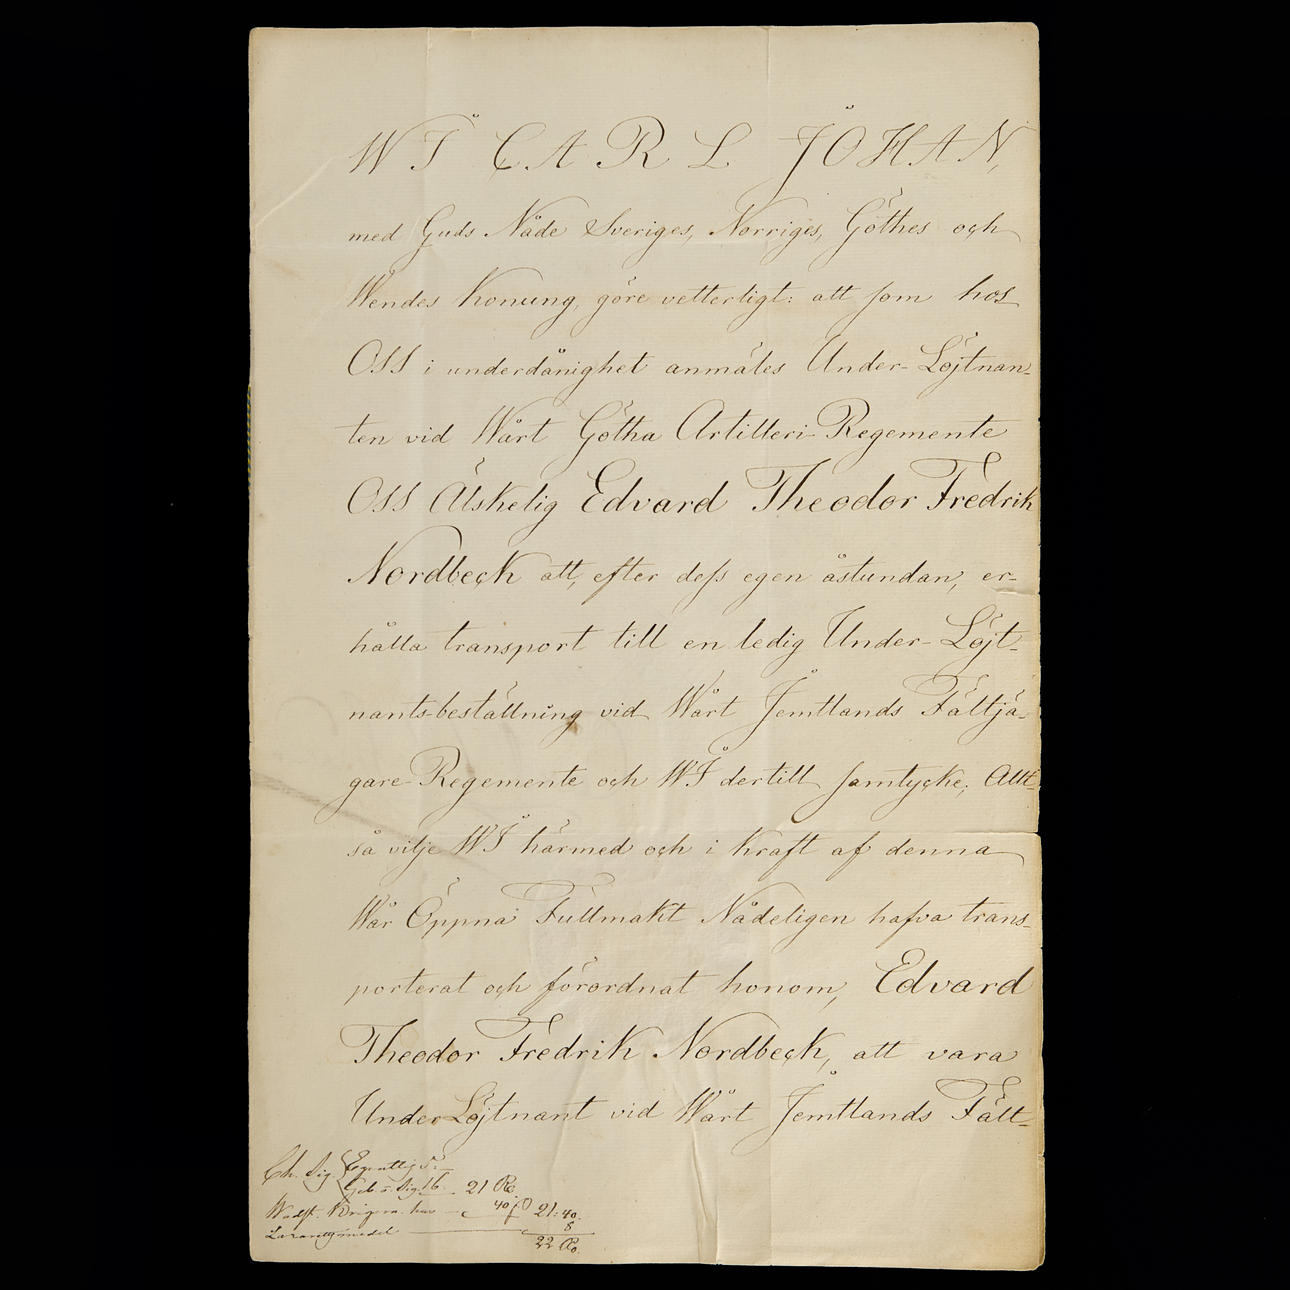 WI CARL JOHAN,
med Guds Nåde Sveriges, Norriges, Göthes och
Wendes Konung, göre vetterligt: att som hos
OSS i underdånighet anmäles Under-Löjtnan-
ten vid Wårt Götha Artilleri-Regemente
OSS Älskelig Edvard Theodor Fredrik
Nordbeck att, efter dess egen åstundan, er-
hålla transport till en ledig Under-Löjt-
nants-beställning vid Wårt Jemtlands Fältjä-
gare-Regemente och WI dertill samtycke; Allt-
så vilje WI härmed och i kraft af denna
Wår Öppna Fullmakt Nådeligen hafva trans-
porterat och förordnat honom, Edvard
Theodor Fredrik Nordbeck, att vara
Under Löjtnant vid Wårt Jemtlands Fält-
Ch. Sig.
16 21 R
Wadst. Krigsm. hus 40 21:40.
Lazarettsmedel 8
22 R